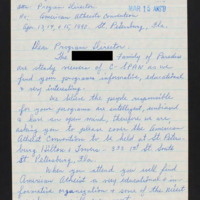 Att: Program Director MAR 15 1987
Re: American Atheists Convention
Apr. 17, 18, & 19, 1987, St. Petersburg, Fla.
Dear Program Director,
The Family of
are steady viewers of C-SPAN as we
find your programs informative, educational,
& very interesting.
We believe the people responsible
for your programs are intelligent, informed
& have an open mind, therefore we are
asking you to please cover the American
Atheist Convention to be held at St. Peters-
burg Hilton & Towers - 333 1st St. South
St. Petersburg, Fla.
When you attend you will find
American Atheists is a very educational & in-
formative organization & one of the